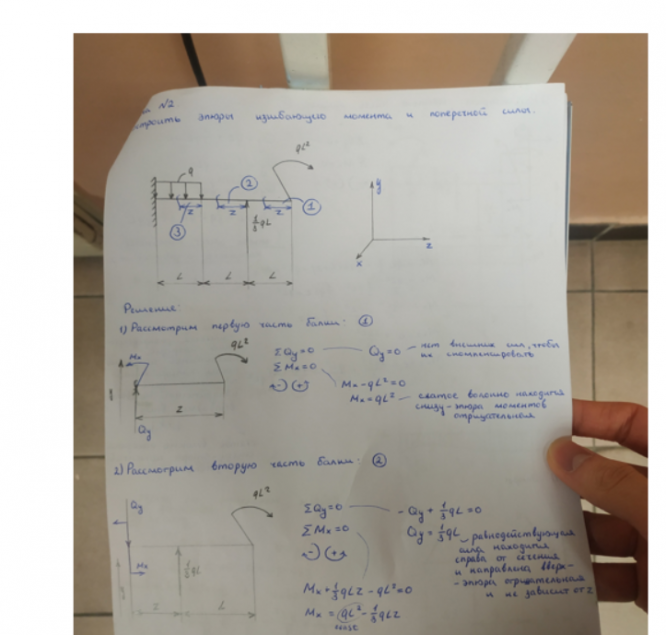 №2
строить эпюры изгибающего момента и поперечной силы.
qL²
q
2
1
z
z
z
3
1/3 qL
y
z
x
L
L
L
Решение:
1) Рассмотрим первую часть балки: 1
qL²
Mx
z
Qy
ΣQy=0
Qy=0 – нет внешних сил, чтобы
их скомпенсировать
ΣMx=0
(-) (+)
Mx-qL²=0
Mx=qL² – сжатое волокно находится
снизу-эпюра моментов
отрицательная
2) Рассмотрим вторую часть балки: 2
Qy
qL²
Mx
1/3 qL
z
L
ΣQy=0
-Qy+1/3 qL=0
ΣMx=0
Qy=1/3 qL – равнодействующая
сила находится
справа от сечения
и направлена вверх-
-эпюра отрицательная
и не зависит от z
(-) (+)
Mx+1/3 qLz-qL²=0
Mx=qL²-1/3 qLz
const